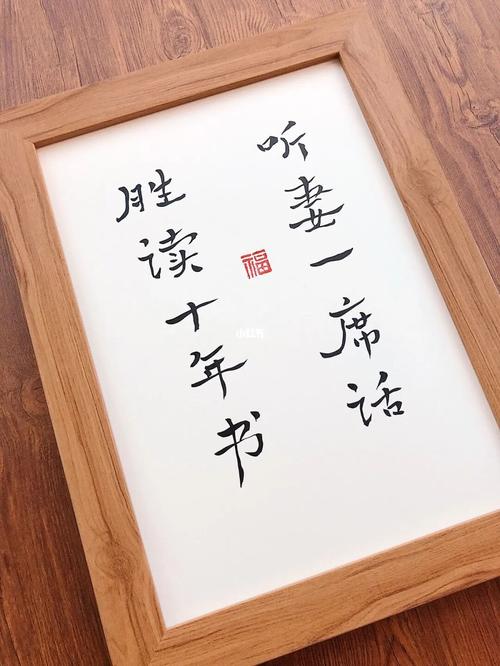 听妻一席话
胜读十年书
福
小红书